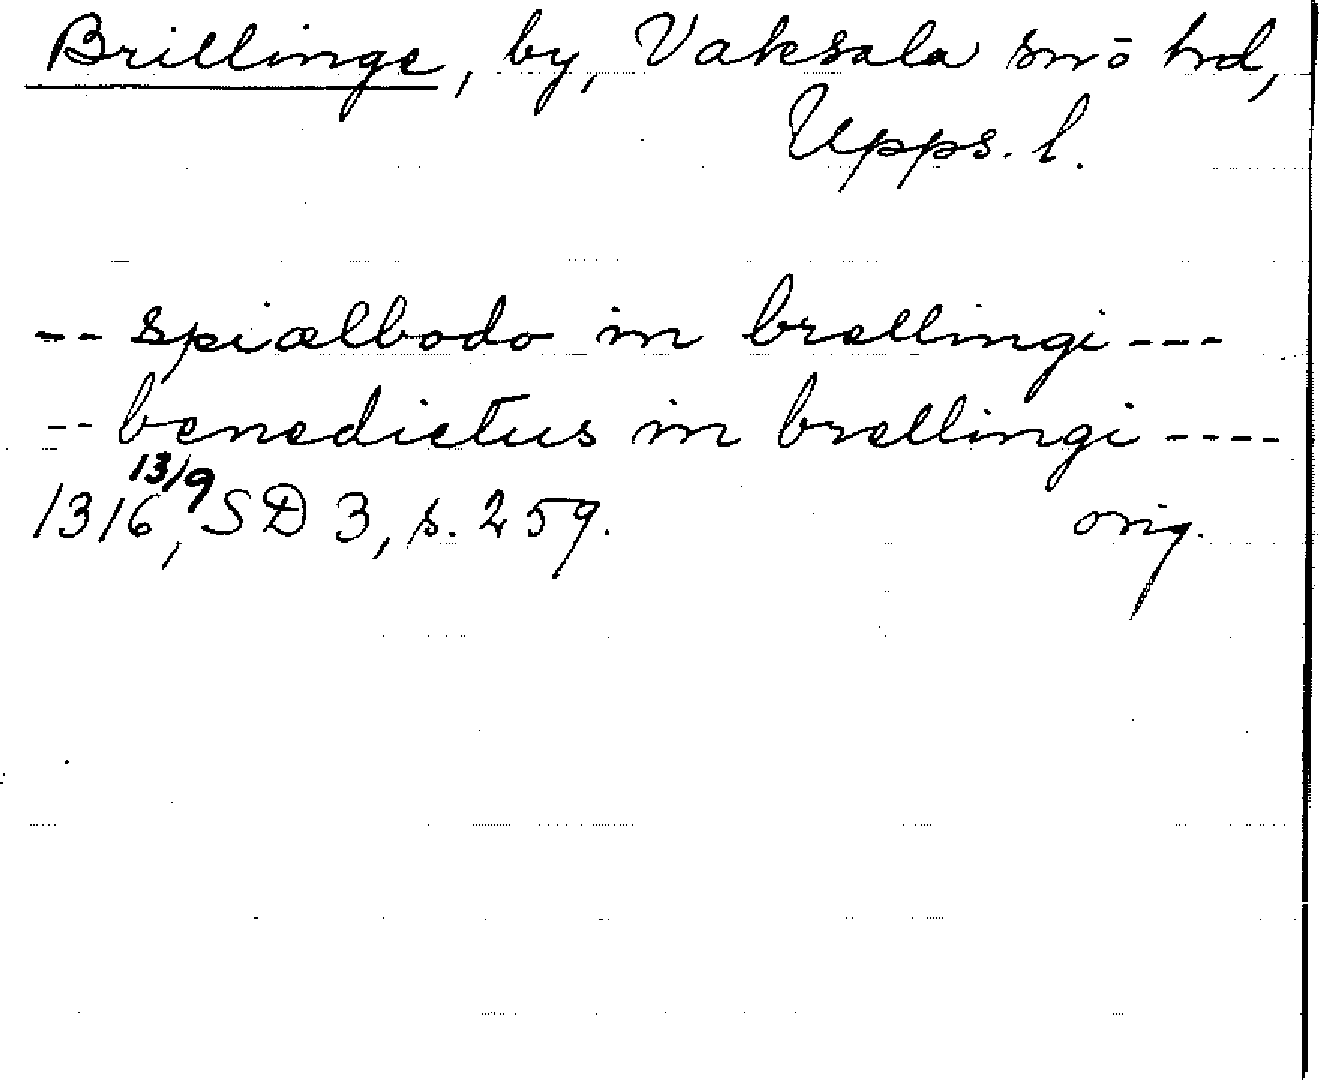 Brillinge, by, Vaksala sn o hd,
Upps. l.
-- spiælbodo in brellingi ---
-- benedictus in brellingi ----
13/9
1316, SD 3, s. 259. orig.